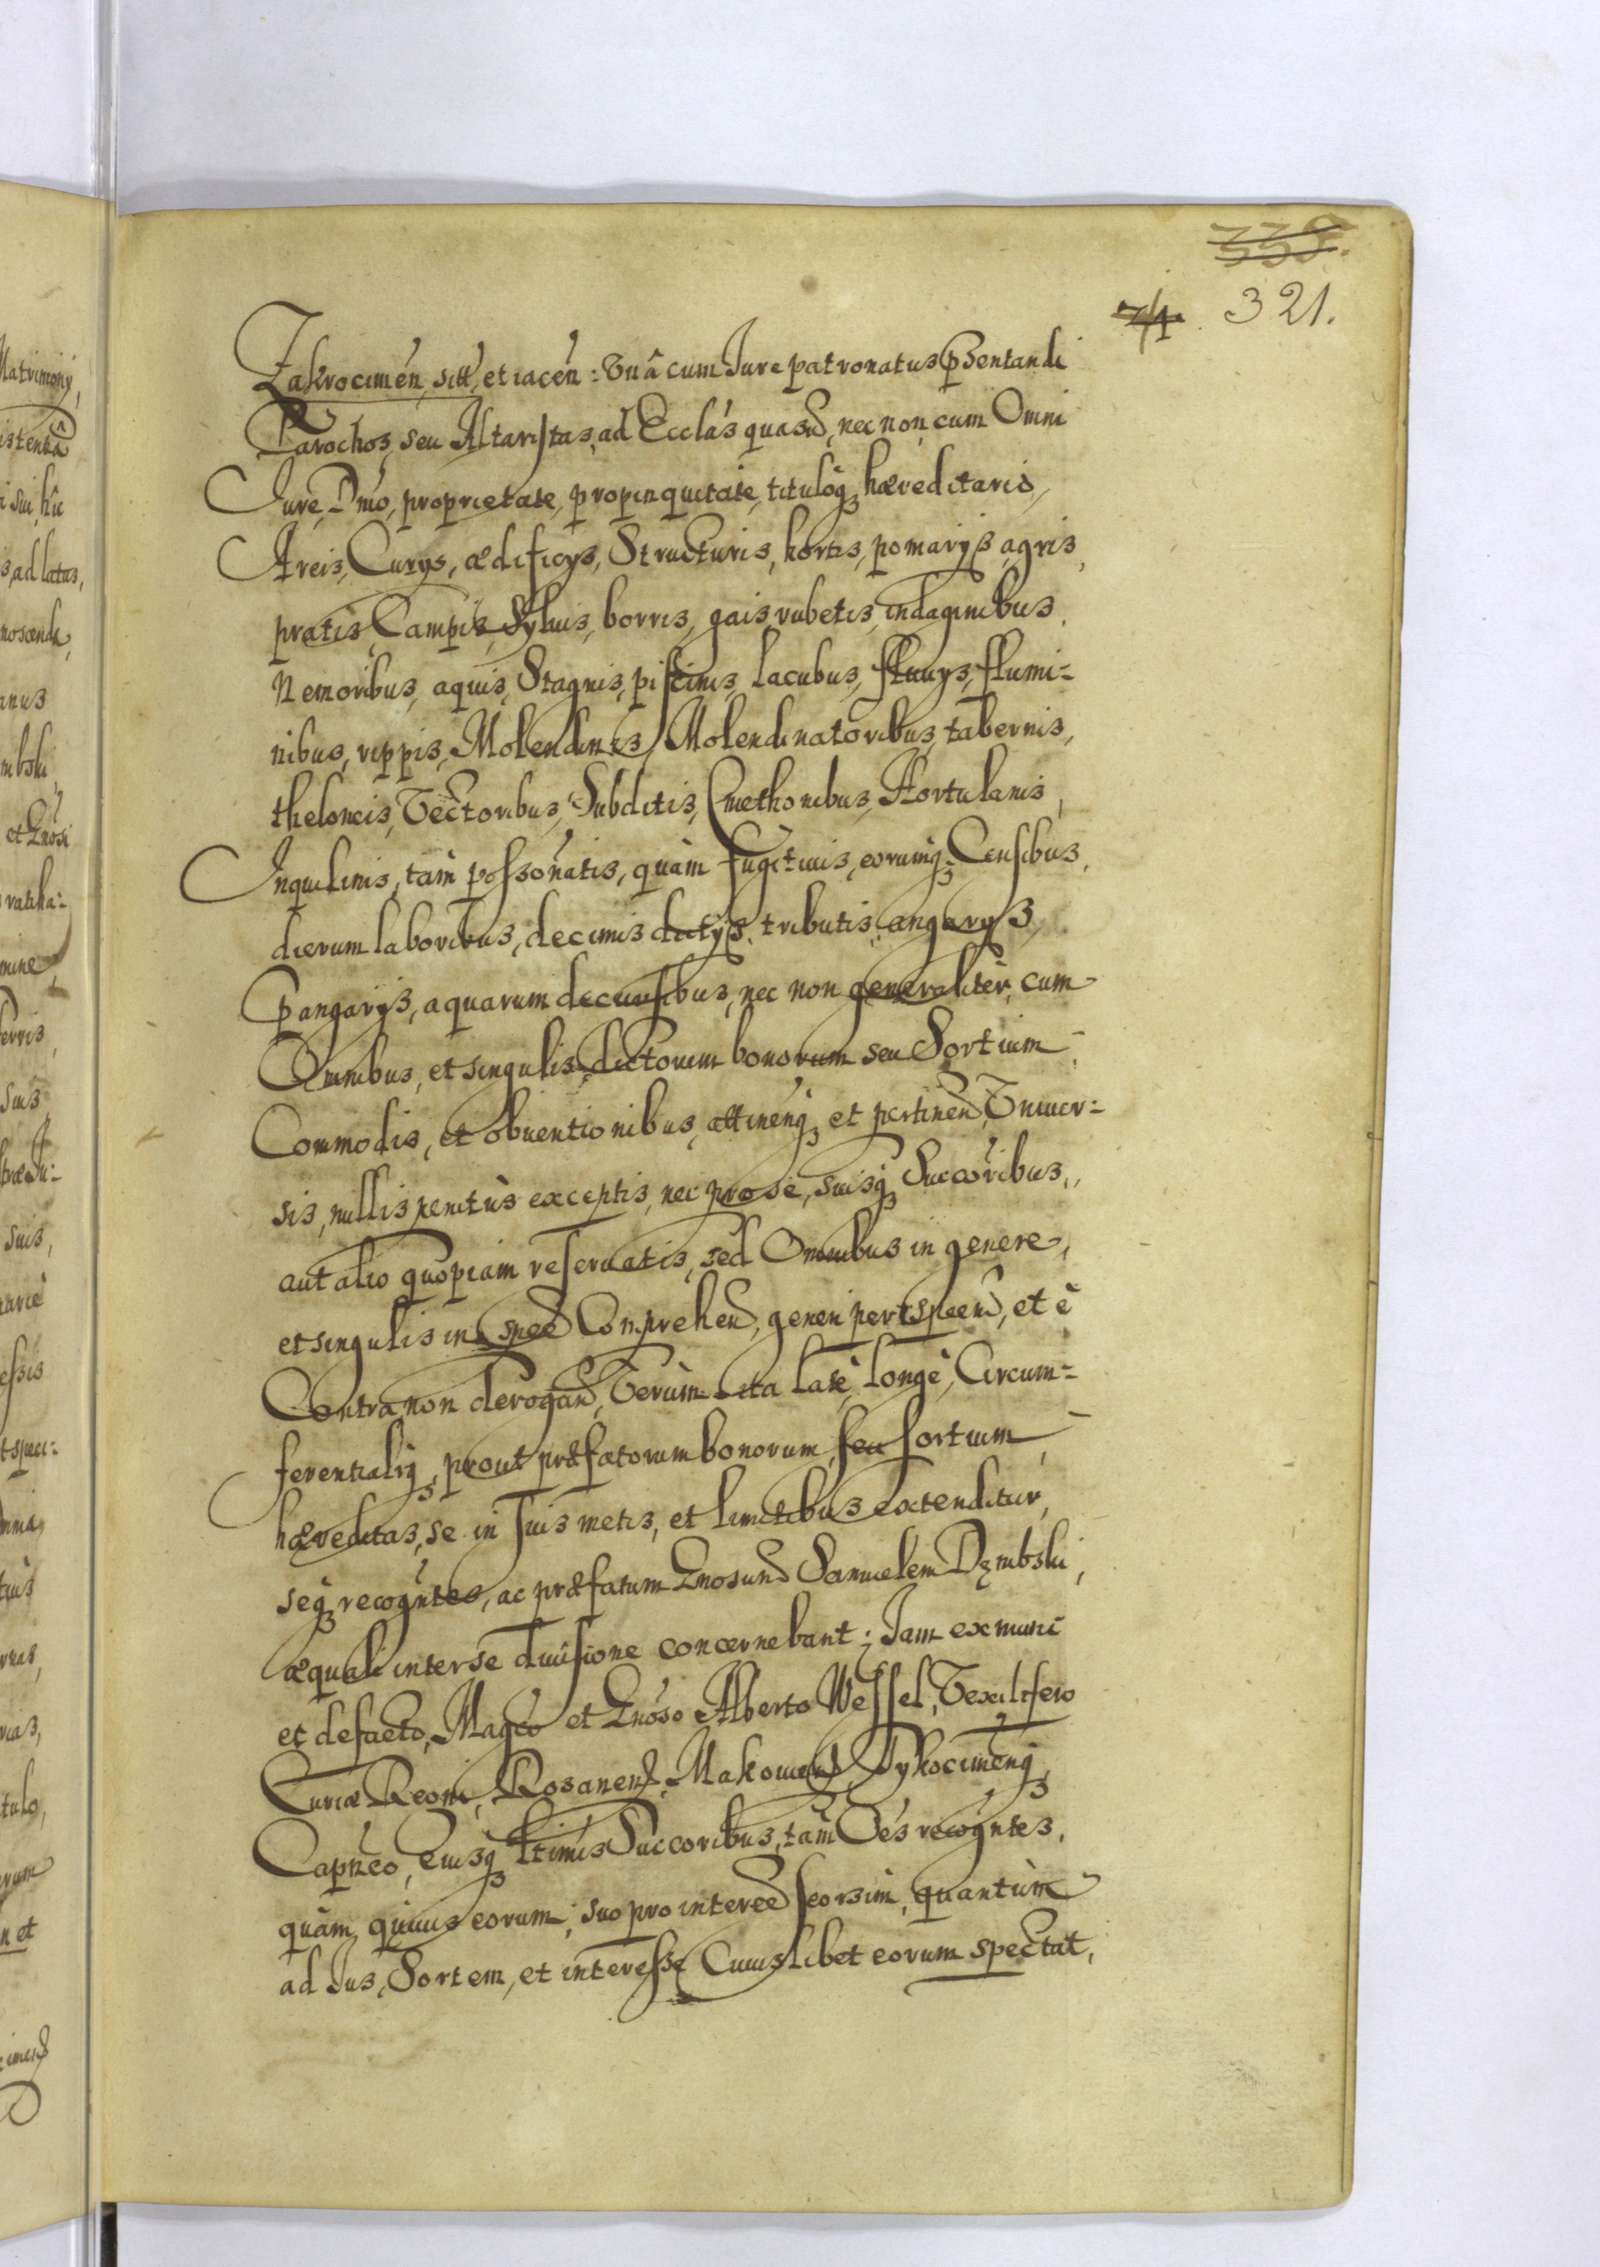 339.
74. 321.
Zakrocimen, sitt, et iacen: Vnâ cum Jure patronatus pñsentandi
Parochos, seu Altaristas, ad Ecclás quasd, nec non cum Omni
Jure, Dnio, proprietate, propinquitate, tituloq hæreditario,
Areis, Curys, ædificys, Structuris, hortis, pomarys, agris,
pratis, Campis, Syluis, borris, gais, rubetis, indaginibus,
Nemoribus, aquis, Stagnis, piscinis, lacubus, fluuys, flumi=
nibus, rippis, Molendinis, Molendinatoribus, tabernis,
theloneis, Vectoribus, Subditis, Cmethonibus, Hortulanis,
Inquilinis, tam possonatis, quàm fugitiuis, eorumq Censibus,
dierum laboribus, decimis datys, tributis, angarys,
Pangarys, aquarum decursibus, nec non generalitèr, cum
Omnibus, et singulis, dictorum bonorum seu Sortium
Commodis, et obuentionibus, attinenq et pertinen Vniuer=
sis, nullis penitùs exceptis, nec pro se, suisq Succoribus,
aut alio quopiam reseruatis, sed Omnibus in genere,
et singulis in spee Comprehen, genen per speem, et è
Contra non derogan, Verùm ita latè, longè, Circum=
ferentialiq, prout præfatorum bonorum, seu sortium
hæreditas, se in suis metis, et limitibus extenditur,
seq recogntes, ac præfatum Gnosum Samuelem Dęmbski,
æquali inter se diuisione concernebant; Jam ex nunc
et de facto, Magco et Gnoso Alberto Wessel, Vexilifero
Curiæ Regni, Rosanen, Makouien, Tykocimenq
Capneo, eiusq ltimis Succoribus, tam Oes recogntes,
quàm quiuis eorum, suo pro interee seorsim, quantùm
ad Jus, Sortem, et interesse Cuiuslibet eorum spectat,